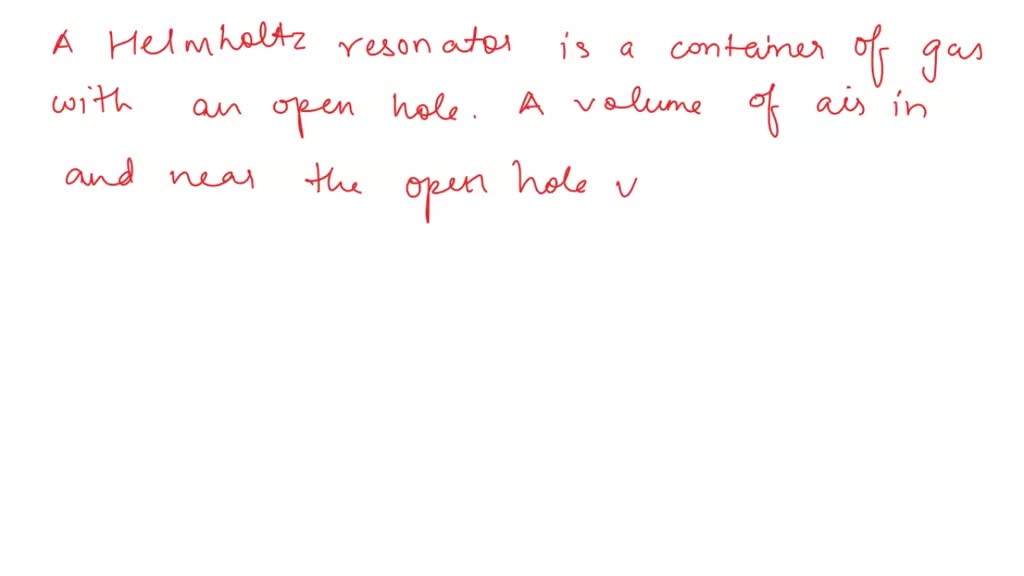 A Helmholtz resonator is a container of gas
with an open hole. A volume of air in
and near the open hole v